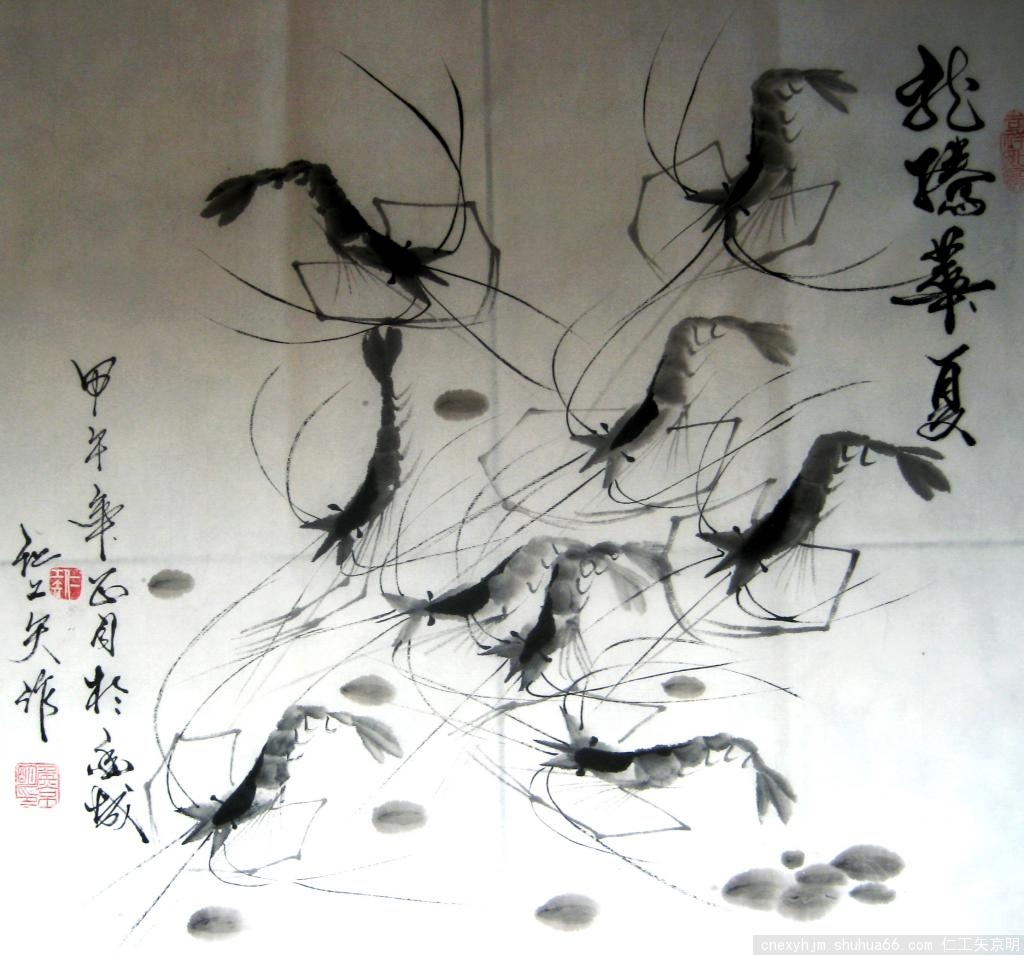 龙腾华夏
甲午年正月於
工矢作
cnexyhjm shuhua66.com 仁工矢京明